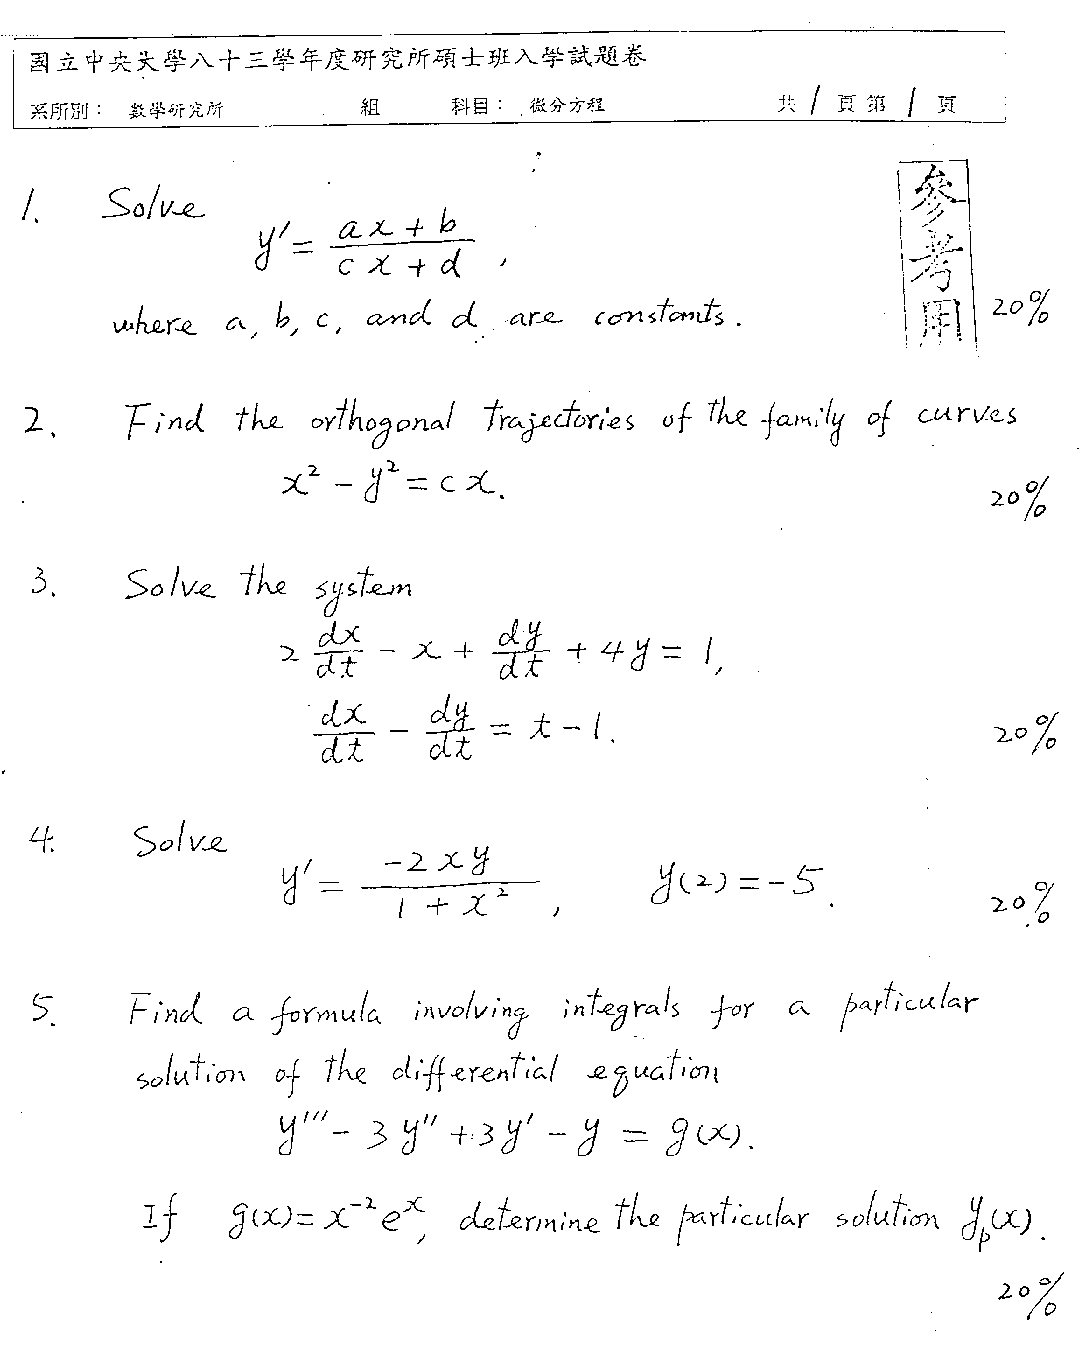 國立中央大學八十三學年度研究所碩士班入學試題卷
系所別： 數學研究所 組 科目： 微分方程 共 1 頁 第 1 頁
參考用
1. Solve
y' = (ax + b)/(cx + d),
where a, b, c, and d are constants. 20%
2. Find the orthogonal trajectories of the family of curves
x² - y² = cx. 20%
3. Solve the system
2 dx/dt - x + dy/dt + 4y = 1,
dx/dt - dy/dt = t - 1. 20%
4. Solve
y' = -2xy/(1 + x²), y(2) = -5. 20%
5. Find a formula involving integrals for a particular
solution of the differential equation
y''' - 3y'' + 3y' - y = g(x).
If g(x) = x⁻²eˣ, determine the particular solution yₚ(x).
20%